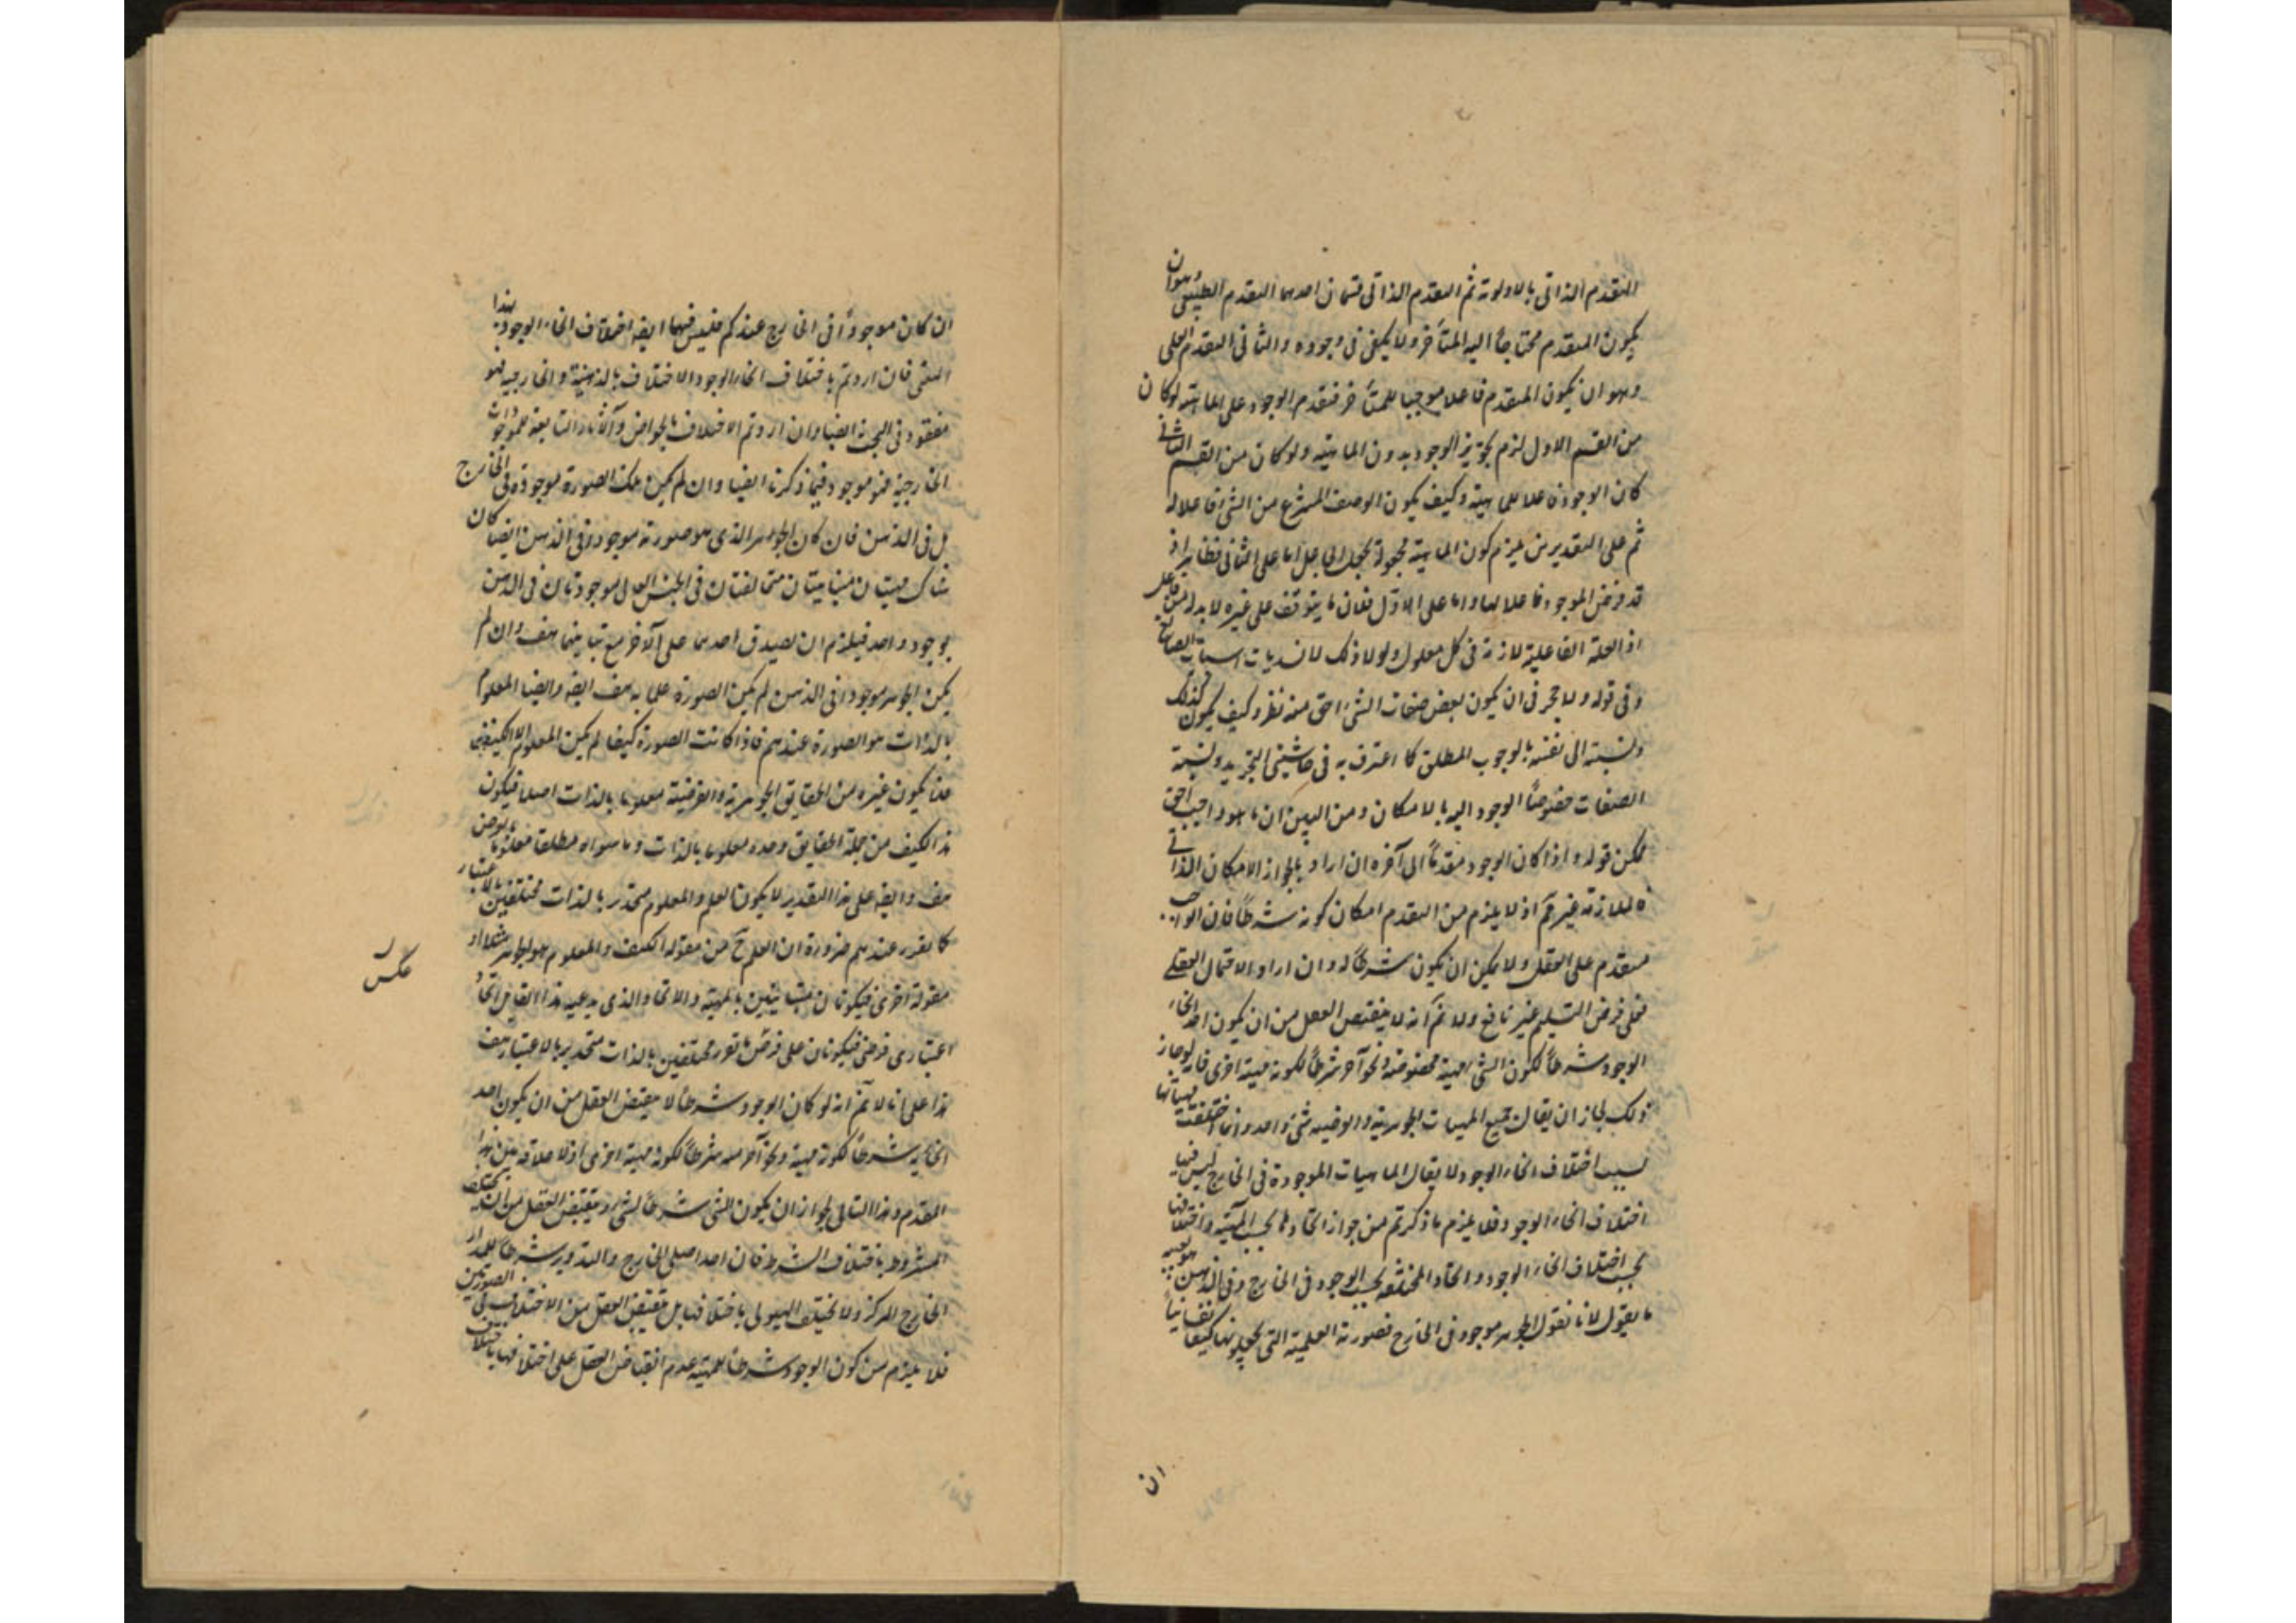 التقدم الذاتى بالاولوية ثم التقدم الذاتى قسمان احدهما التقدم الطبيعى وهو ان
يكون المتقدم محتاجاً اليه المتأخر ولا يكفى فى وجوده والثانى التقدم العلى
وهو ان يكون المتقدم فاعلا موجبا للمتأخر فتقدم الوجود على الماهية لو كان
من القسم الاول لزم تجويز الوجود بدون الماهية ولو كان من القسم الثانى
كان الوجود فاعلا للماهية وكيف يكون الوصف المنتزع من الشئ فاعلا له
ثم على التقديرين يلزم كون الماهية مجعولة بجعل الجاعل اما على الثانى فظاهر اذ
قد فرض الموجود فاعلا لها واما على الاول فلان ما يتوقف على غيره لا بد له من فاعل
اذ العلة الفاعلية لازمة فى كل معلول ولولا ذلك لانسد باب اثبات الصانع
وفى قوله ولا حجر فى ان يكون بعض صفات الشئ احق منه نظر وكيف يكون كذلك
ونسبته الى نفسه بالوجوب المطلق كما اعترف به فى حاشيتى التجريد ونسبة
الصفات خصوصاً الوجود اليه بالامكان ومن البين ان ما هو واجب احق
ممكن قوله واذا كان الوجود متقدماً الى آخره ان اراد بالجواز الامكان الذاتى
فالملازمة غير تم اذ لا يلزم من التقدم امكان كونه شرطاً فان الواجب
متقدم على العقل ولا يمكن ان يكون شرطاً له وان اراد الاحتمال العقلى
فعلى فرض التسليم غير نافع ولا تم انه لا ينقبض العقل من ان يكون احد انحاء
الوجود شرطاً لكون الشئ مهية مخصوصة ونحو آخر شرطاً لكونه مهية اخرى فانه لو جاز
ذلك لجاز ان يقال جميع المهيات الجوهرية والعرضية شئ واحد وانما اختلفت مهياتها
بسبب اختلاف انحاء الوجود لا يقال الماهيات الموجودة فى الخارج ليس فيها
اختلاف انحاء الوجود فلا يلزم ما ذكرتم من جواز اتحادها بحسب المهية واختلافها
بحسب اختلاف انحاء الوجود واتحاد المختلفة بحسب الوجود فى الخارج وفى الذهن هو بعينه
ما يقول لانا نقول الجوهر موجود فى الخارج فصورته العلمية التى تجعلونها كيفا نفسانياً
ان
ان كان موجوداً فى الخارج عندكم فليس فيها ايضا اختلاف انحاء الوجود بهذا
المعنى فان اردتم باختلاف انحاء الوجود الاختلاف بالذهنية والخارجية فهو
مفقود فى البحث ايضا وان اردتم الاختلاف بالخواص والآثار التابعة للموجودات
الخارجية فهو موجود فيما ذكرنا ايضا وان لم يكن تلك الصورة موجودة فى الخارج
بل فى الذهن فان كان الجوهر الذى هو صورته موجود فى الذهن ايضا كان
هناك مهيتان متباينتان متخالفتان فى الجنس العالى موجودتان فى الذهن
بوجود واحد فيلزم ان يصدق احدهما على الآخر مع تباينهما هف وان لم
يكن الجوهر موجودا فى الذهن لم يكن الصورة علما به هف ايضا وايضا المعلوم
بالذات هو الصورة عندهم فاذا كانت الصورة كيفا لم يكن المعلوم الا الكيف
فلا يكون غيره من الحقايق الجوهرية والعرضية معلوما بالذات اصلا فيكون
هذا الكيف من جملة الحقايق وحده معلوما بالذات وما سواه مطلقا معلوما بالعرض
هف وايضا على هذا التقدير لا يكون العلم والمعلوم متحدين بالذات مختلفين بالاعتبار
كما تقرر عندهم ضرورة ان العلم ح من مقولة الكيف والمعلوم هو الجوهر مثلا او
مقولة اخرى فيكونان متباينين بالمهية والاتحاد الذى يدعيه هذا القايل اتحاد
اعتبارى فرضى فيكونان على فرض ما تقرر مختلفين بالذات متحدين بالاعتبار هف
هذا على انا لا نم انه لو كان الوجود شرطاً لا ينقبض العقل من ان يكون احد
انحائه شرطاً لكونه مهية ونحو آخر منه شرطاً لكونه مهية اخرى اذ لا علاقة بين هذا
المقدم وهذا التالى لجواز ان يكون الشئ شرطاً لشئ وينقبض العقل من ان يختلف
المشروط باختلاف الشرط فان احد اصلى الخارج والتدوير شرطاً للمدار
الخارج المركز ولا يختلف الهيولى باختلافها بل ينقبض العقل من الاختلاف فى الصورتين
فلا يلزم من كون الوجود شرطاً للمهية عدم انقباض العقل على اختلافها باختلاف
عكس